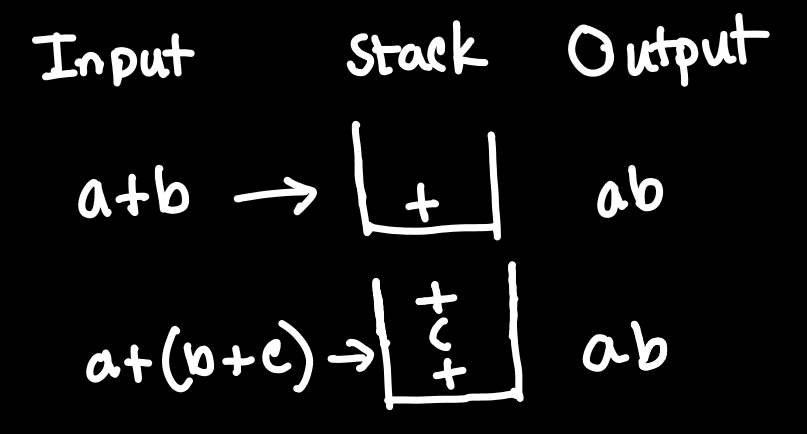 Input Stack Output
a+b → + ab
+
(
a+(b+c) → + ab